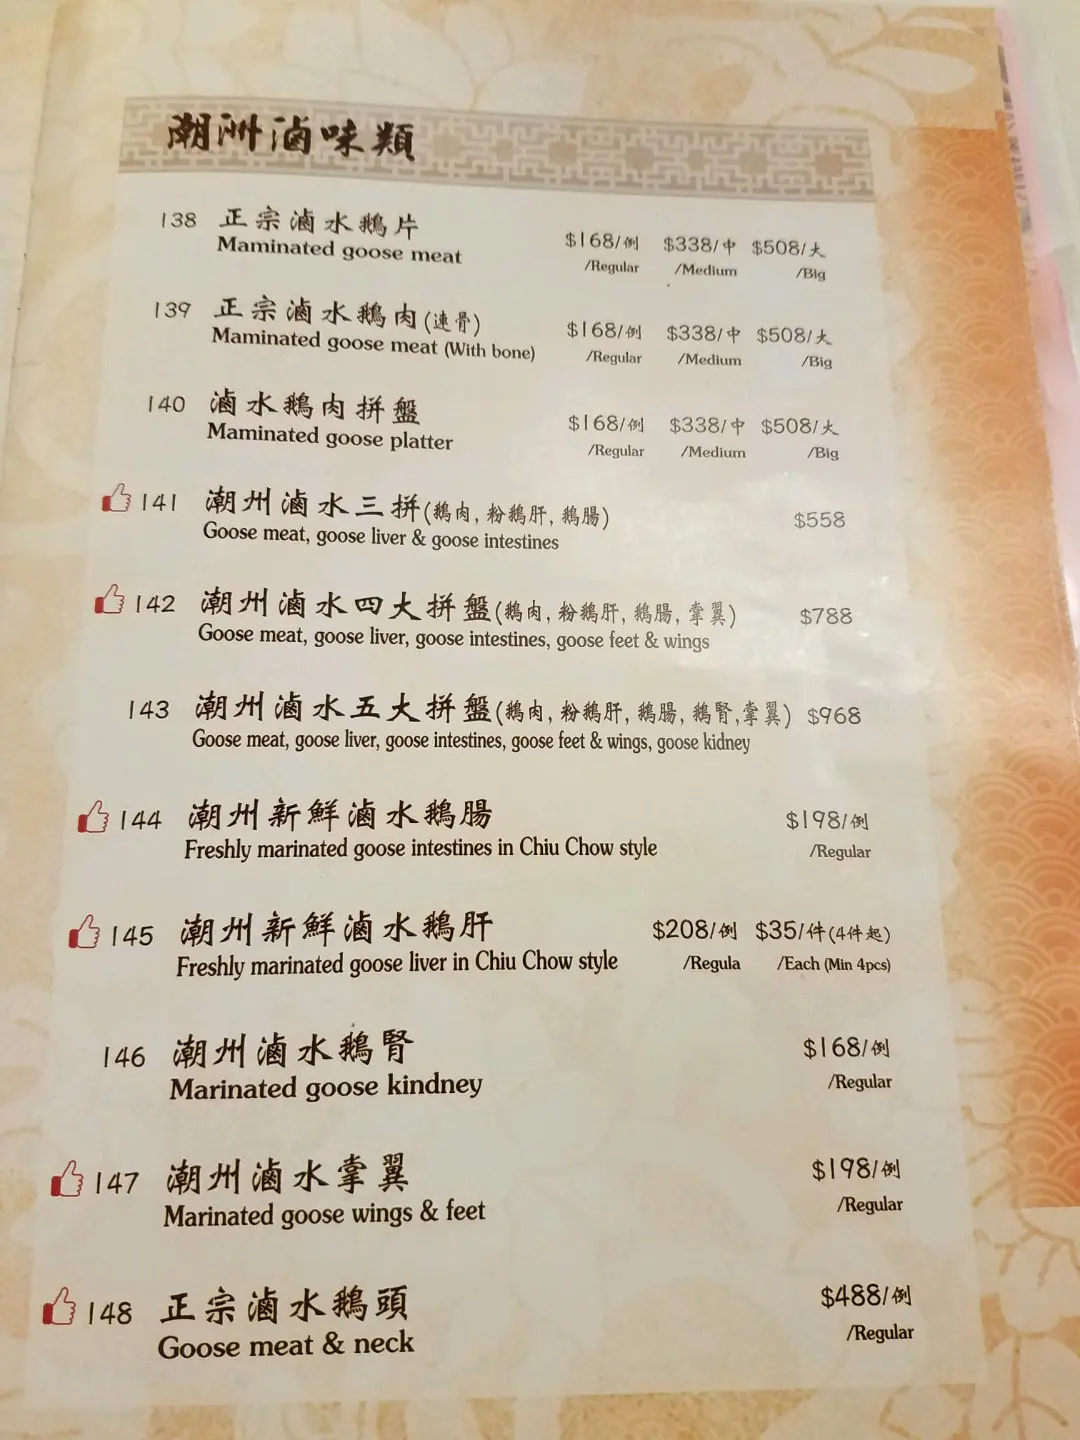 潮洲滷味類
138 正宗滷水鵝片 $168/例 $338/中 $508/大
Maminated goose meat /Regular /Medium /Big
139 正宗滷水鵝肉(連骨) $168/例 $338/中 $508/大
Maminated goose meat (With bone) /Regular /Medium /Big
140 滷水鵝肉拼盤 $168/例 $338/中 $508/大
Maminated goose platter /Regular /Medium /Big
141 潮州滷水三拼(鵝肉, 粉鵝肝, 鵝腸) $558
Goose meat, goose liver & goose intestines
142 潮州滷水四大拼盤(鵝肉, 粉鵝肝, 鵝腸, 掌翼) $788
Goose meat, goose liver, goose intestines, goose feet & wings
143 潮州滷水五大拼盤(鵝肉, 粉鵝肝, 鵝腸, 鵝腎, 掌翼) $968
Goose meat, goose liver, goose intestines, goose feet & wings, goose kidney
144 潮州新鮮滷水鵝腸 $198/例
Freshly marinated goose intestines in Chiu Chow style /Regular
145 潮州新鮮滷水鵝肝 $208/例 $35/件(4件起)
Freshly marinated goose liver in Chiu Chow style /Regula /Each (Min 4pcs)
146 潮州滷水鵝腎 $168/例
Marinated goose kindney /Regular
147 潮州滷水掌翼 $198/例
Marinated goose wings & feet /Regular
148 正宗滷水鵝頭 $488/例
Goose meat & neck /Regular